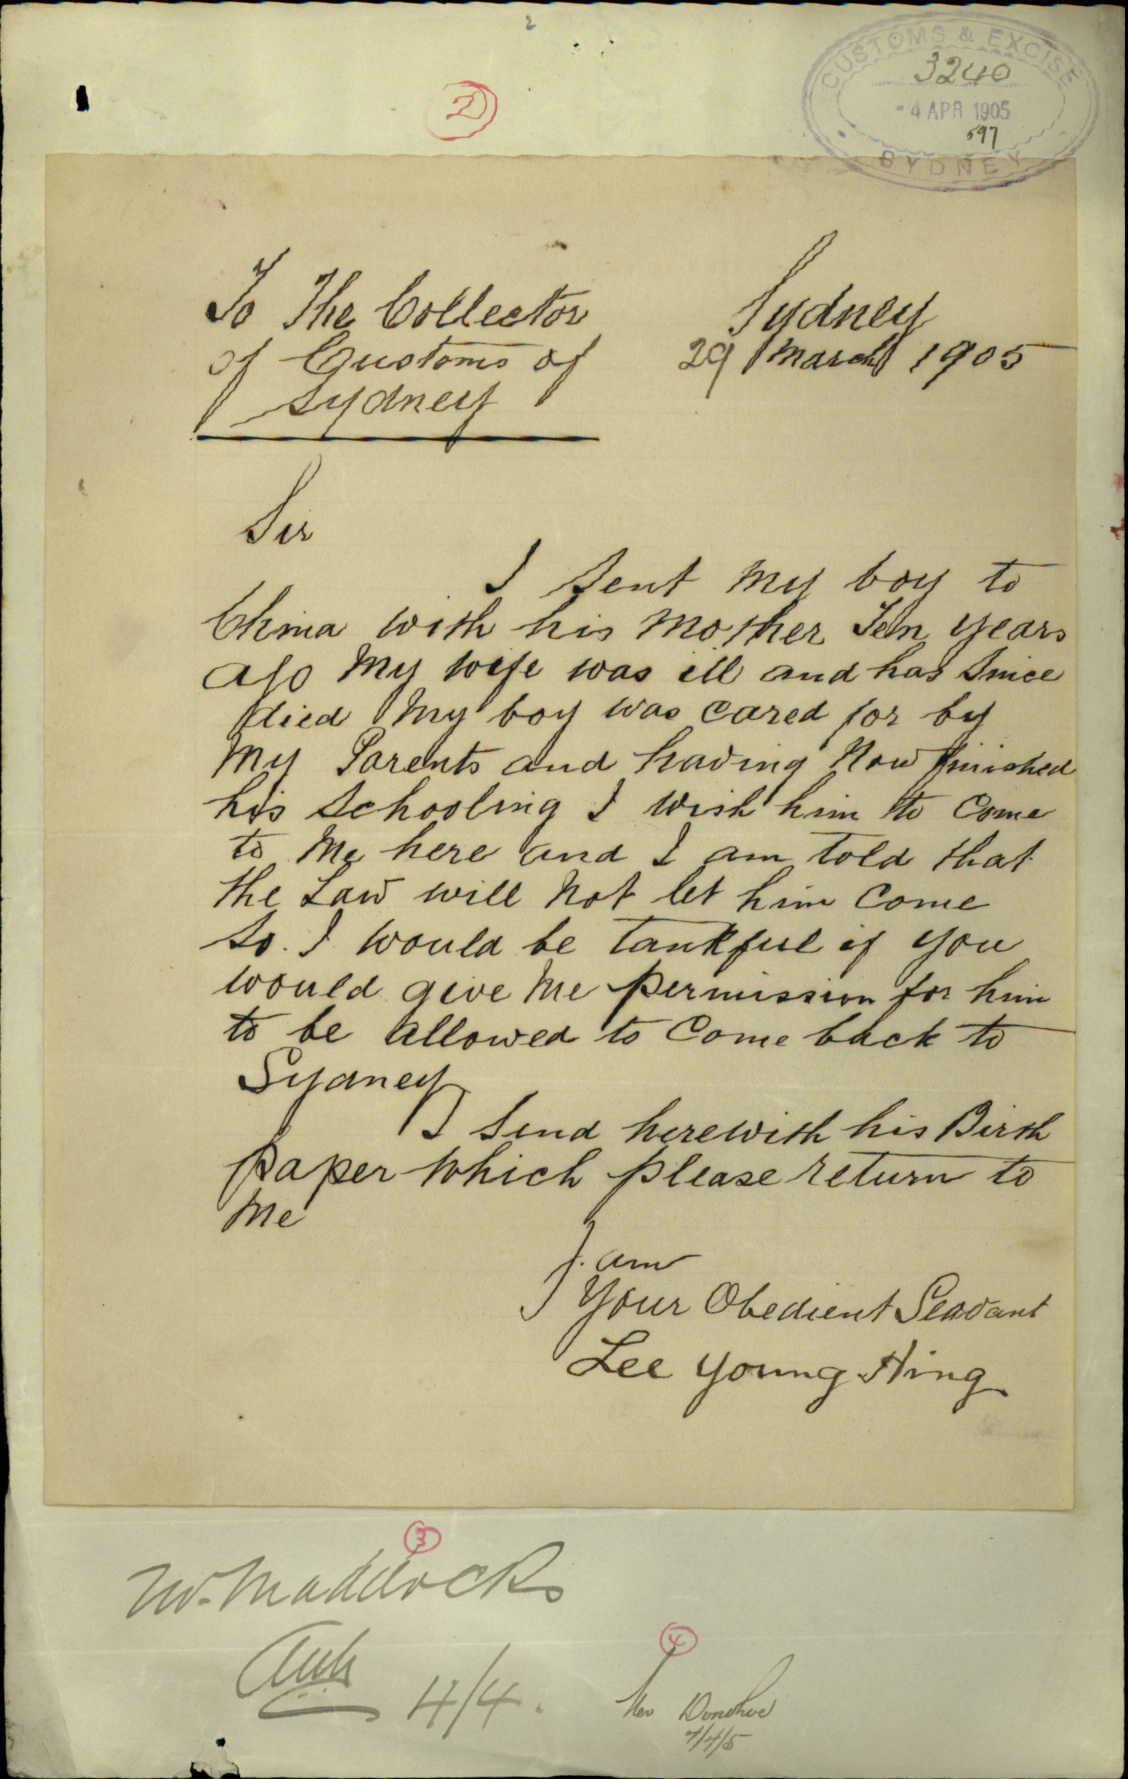 2
CUSTOMS & EXCISE
3240
4 APR 1905
597
SYDNEY
2
To The Collector
of Customs of
Sydney
Sydney
29 March 1905
Sir
I sent my boy to
China with his Mother Ten years
ago My wife was ill and has Since
died My boy was cared for by
My Parents and having Now finished
his Schooling I wish him to Come
to Me here and I am told that
the Law will Not let him Come
So. I would be tankful if you
would give Me permission for him
to be allowed to Come back to
Sydney
I Send herewith his Birth
paper which please return to
Me
I. am
Your Obedient Seavant
Lee Young Hing
3
Maddocks
4/4.
4
Donohoe
7/4/5